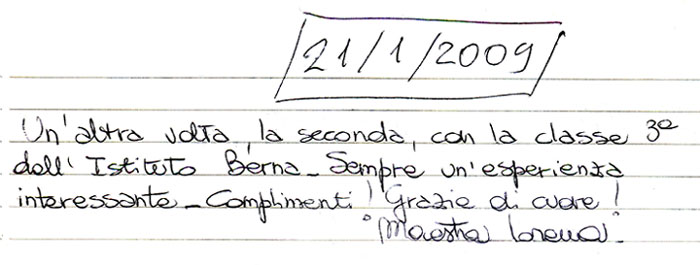 21/1/2009
Un'altra volta, la seconda, con la classe 3ª
dell'Istituto Berna_Sempre un'esperienza
interessante_Complimenti! Grazie di cuore!
"Maestra Lorena"